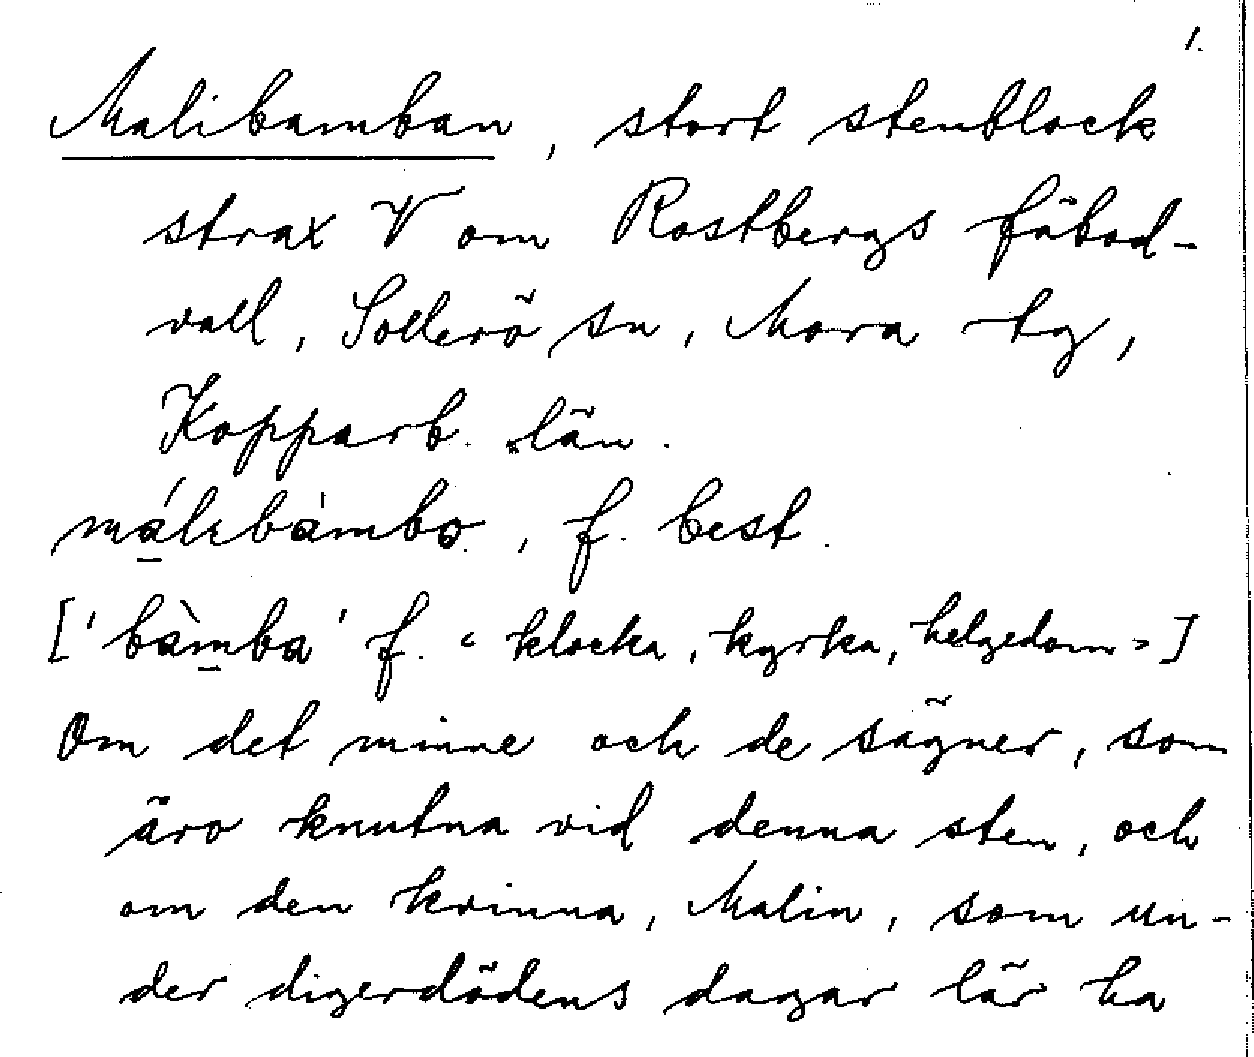 1.
Malibamban, stort stenblock
strax V om Rostbergs fäbod-
vall, Sollerö sn, Mora tg,
Kopparb. län.
málıbàmbo, f. best.
['bàmba' f. "klocka, kyrka, helgedom"]
Om det minne och de sägner, som
äro knutna vid denna sten, och
om den kvinna, Malin, som un-
der digerdödens dagar lär ha